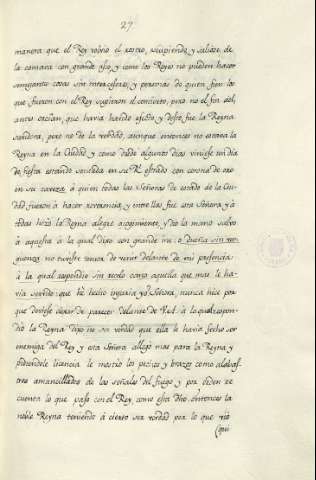 27
manera que el Rey volvio el rostro, escupiendo, y saliose de
la camara con grande asco, y como los Reyes no pueden hacer
semejante cosas sin intercesores, y personas de quien fien los
que fueron con el Rey supieron el concierto, pero no el fin del,
antes decian, que havia havido efecto, y desto fue la Reyna
savidora, pero no de la verdad, aunque entonces no estava la
Reyna en la Ciudad, y como desde algunos dias viniese un dia
de fiesta estando sentada en su Rl. estrado con corona de oro
en su caveza á quien todas las Señoras de estado de la Ciu-
dad, fueron a hacer reverencia, y entre ellas fue esta Señora, y á
todas hizo la Reyna alegre acogimiento, y dio la mano salvo
á aquesta á la qual dixo con grande ira: o dueña sin ver-
guenza no tuviste temor de venir delante de mi presencia:
á la qual respondio sin recelo como aquella que mas le ha-
via servido: que he hecho injuria yo Señora, nunca hice por
que deviese dexar de parecer delante de V.A. á la qual respon-
dio la Reyna dijo no sea verdad que ella le havia hecho ser
enemiga del Rey y esta Señora allegó mas para la Reyna y
pidiendole licencia le mostro los pechos y brazos como alabas-
tros amancillados de las señales del fuego y por orden ze
cuenta lo que paso con el Rey, como esta dho. entonces la
noble Reyna teniendo á cierto ser verdad por lo que vio
(qui